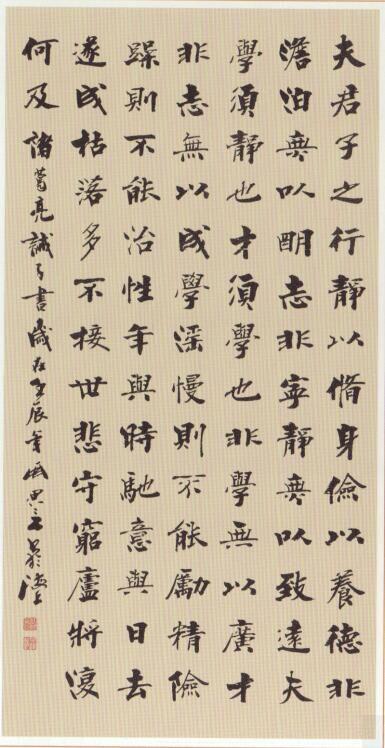 夫君子之行靜以脩身儉以養德非
澹泊無以明志非寧靜無以致遠夫
學須靜也才須學也非學無以廣才
非志無以成學淫慢則不能勵精險
躁則不能治性年與時馳意與日去
遂成枯落多不接世悲守窮廬將復
何及 諸葛亮誡子書 歲在壬辰年